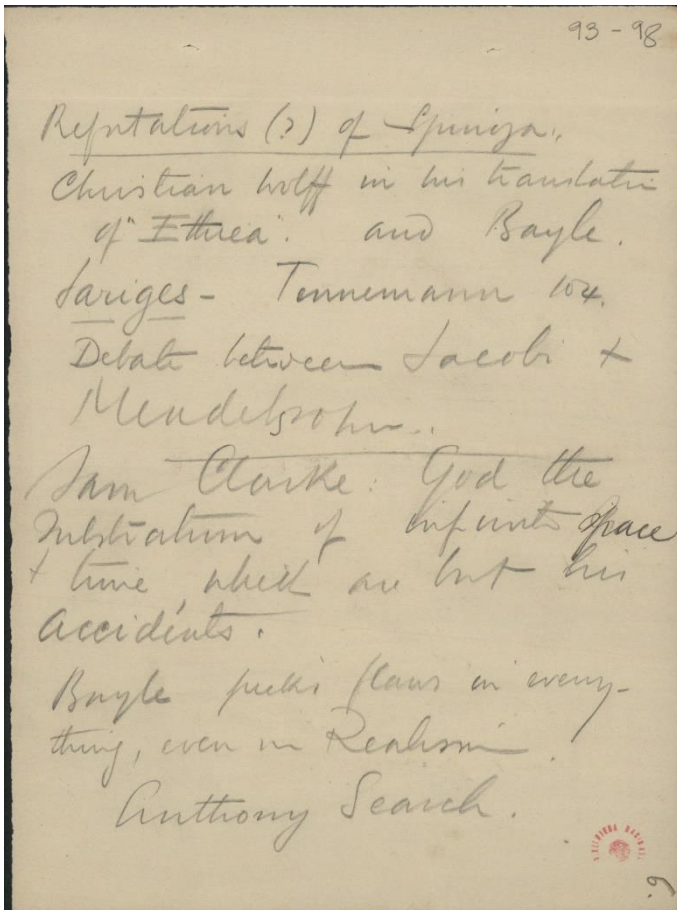 93-98
Refutations (?) of Spinoza.
Christian Wolff in his translation
of "Ethica". and Bayle.
Jariges - Tennemann 104.
Debate between Jacobi +
Mendelssohn..
Sam Clarke: God the
substratum of infinite space
+ time, which are but his
accidents.
Bayle picks flaws in every-
thing, even in Realism.
Anthony Search.